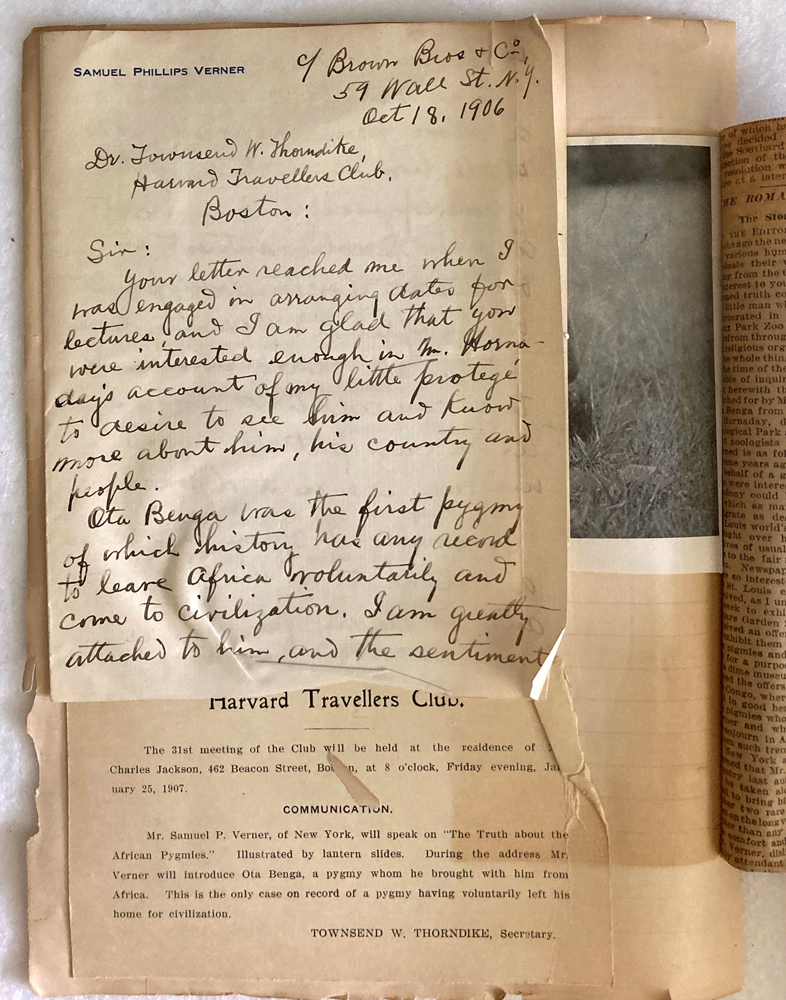 SAMUEL PHILLIPS VERNER
c/ Brown Bros & Co,
59 Wall St. N.Y.
Oct 18, 1906
Dr. Townsend W. Thorndike,
Harvard Travellers Club,
Boston:
Sir:
Your letter reached me when I
was engaged in arranging dates for
lectures, and I am glad that you
were interested enough in Mr. Horna-
day's account of my little protegé
to desire to see him and know
more about him, his country and
people.
Ota Benga was the first pygmy
of which history has any record
to leave Africa voluntarily and
come to civilization. I am greatly
attached to him, and the sentiment
Harvard Travellers Club.
The 31st meeting of the Club will be held at the residence of
Charles Jackson, 462 Beacon Street, at 8 o'clock, Friday evening, Jan
uary 25, 1907.
COMMUNICATION.
Mr. Samuel P. Verner, of New York, will speak on "The Truth about the
African Pygmies." Illustrated by lantern slides. During the address Mr.
Verner will introduce Ota Benga, a pygmy whom he brought with him from
Africa. This is the only case on record of a pygmy having voluntarily left his
home for civilization.
TOWNSEND W. THORNDIKE, Secretary.
of which
decided
Southard
of the
resolution
at a later
HE ROMA
The
THE EDITOR
change the
various
their
from the
to you
truth
little man
in
Park Zoo
from through
religious
whole thing
time of the
of inquir
herewith
for by M
Benga from
Hornaday,
Park
zoologists
is as
years
behalf of a
were
could
which as
as
Louis world's
over
of usual
to the fair
Newspap
so interest
St. Louis
as I
to
Garden
an
exhibit them
pigmies and
for a
dime museu
the offers
Congo,
in good
pigmies who
and
in A
such
New York
that Mr.
last
be taken
to bring
two rare
on the long
than any
comfort and
Verner,
attendant